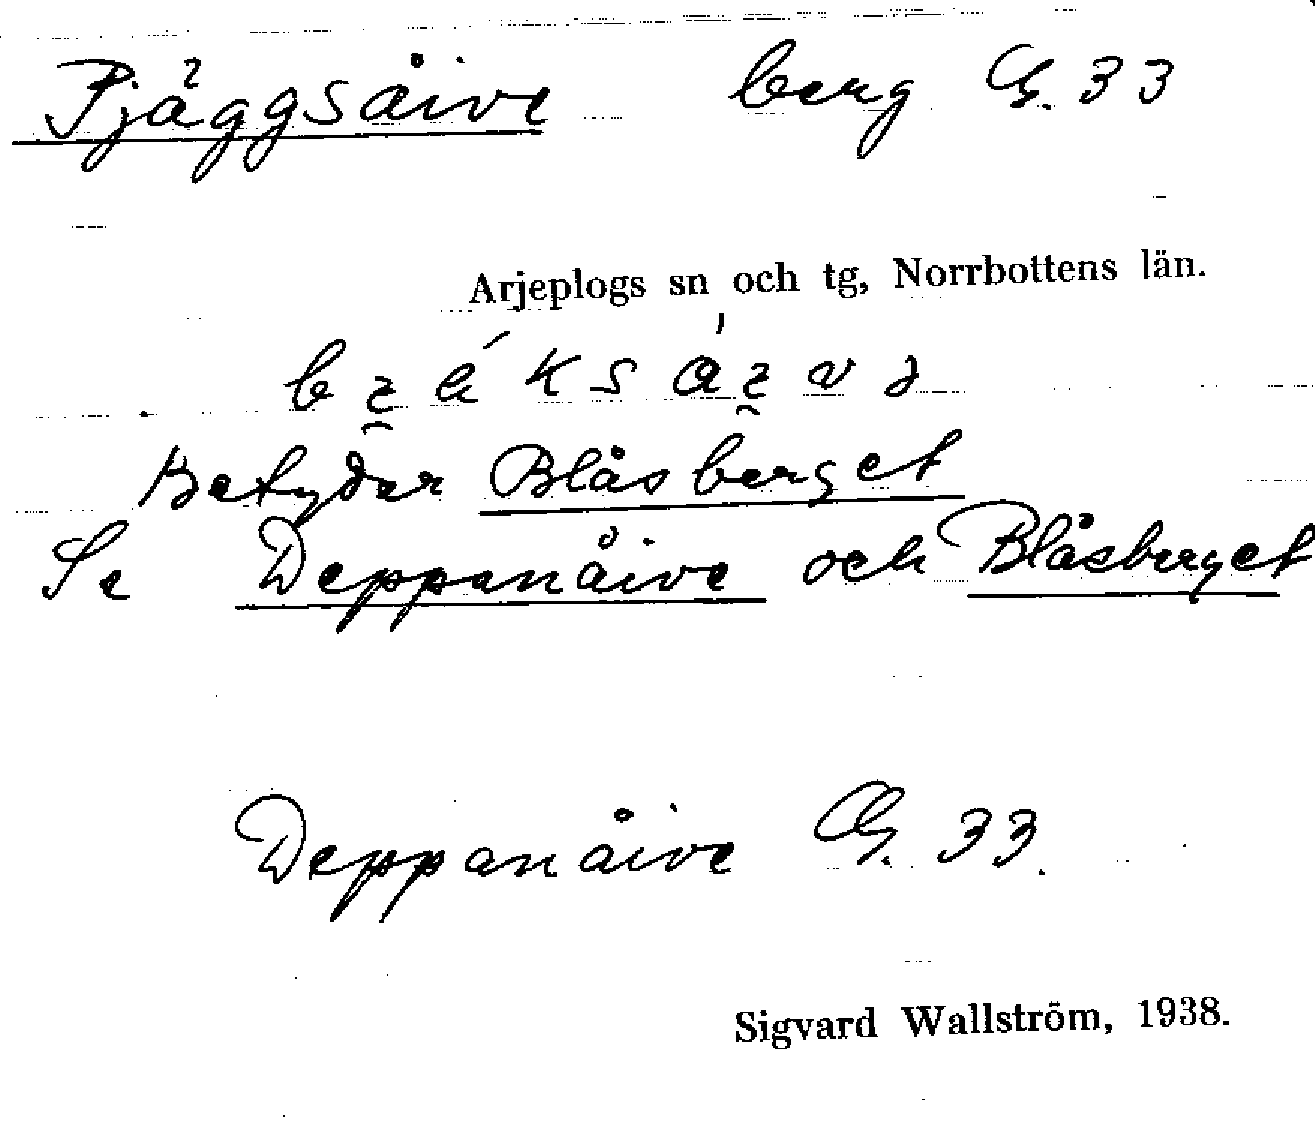 Pjåggsåive berg G. 33
Arjeplogs sn och tg, Norrbottens län.
Betyder Blåsberget
Se Deppanåive och Blåsberget
Deppanåive G. 33.
Sigvard Wallström, 1938.